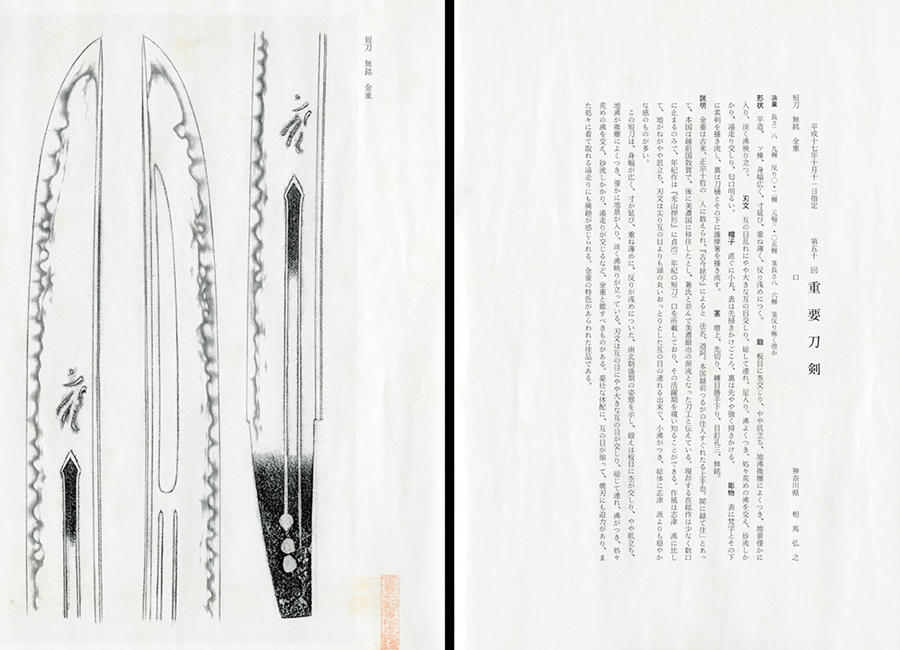 短刀 無銘 金重
平成十七年十月十二日指定 第五十 回 重要刀剣
短刀 無銘 金重 口 神奈川県 相馬弘之
法量 長さ 八・九糎 反り〇・二糎 元幅三・〇五糎 茎長さ八・六糎 茎反り極く僅か
形状 平造、 ツ棟、身幅広く、寸延び、重ね薄く、反り浅めにつく。 鍛 板目に杢交じり、やや肌立ち、地沸微塵によくつき、地景僅かに
入り、淡く沸映り立つ。 刃文 互の目乱れにやや大きな互の目交じり、総じて連れ、足入り、沸よくつき、処々荒めの沸を交え、砂流しか
かり、湯走り交じり、匂口明るい。 帽子 直ぐに小丸、表は先掃きかけごころ、裏は先やや強く掃きかける。 彫物 表に梵字とその下
に素剣を掻き流し、裏は刀樋とその下に護摩箸を掻き流す。 茎 磨上、先切り、鑢目勝手下り、目釘孔三、無銘。
説明 金重は古来、正宗十哲の 人に数えられ、『古今銘尽』によると 法名、道阿。本国越前つるがの住人すぐれたる上手也。関に越て住」とあっ
て、本国は越前国敦賀で、後に美濃国に移住したとし、兼氏と並んで美濃鍛冶の源流となった刀工と伝えている。現存する在銘作は少なく数口
に止まるのみで、年紀作は『光山押形』に貞治二年紀の短刀二口を所載しており、その活躍期を窺い知ることができる。作風は志津 派に比し
て、地がねがやや肌立ち、刃文は尖り互の目よりも頭の丸いおっとりとした互の目の連れる出来で、小沸がつき、総体に志津 派よりも穏やか
な感のものが多い。
この短刀は、身幅が広く、寸が延び、重ね薄めに、反りが浅めについた、南北朝盛期の姿態を示し、鍛えは板目に杢が交じり、やや肌立ち、
地沸が微塵によくつき、僅かに地景が入り、淡く沸映りが立っている。刃文は互の目にやや大きな互の目が交じり、総じて連れ、沸がつき、処々
荒めの沸を交え、砂流しかかり、湯走りが交じるなど、金重と鑑すべきものがある。豪壮な体配に、互の目が揃って、焼刃にも迫力があり、ま
た処々に看て取れる湯走りにも興趣が感じられる。金重の特色があらわれた佳品である。